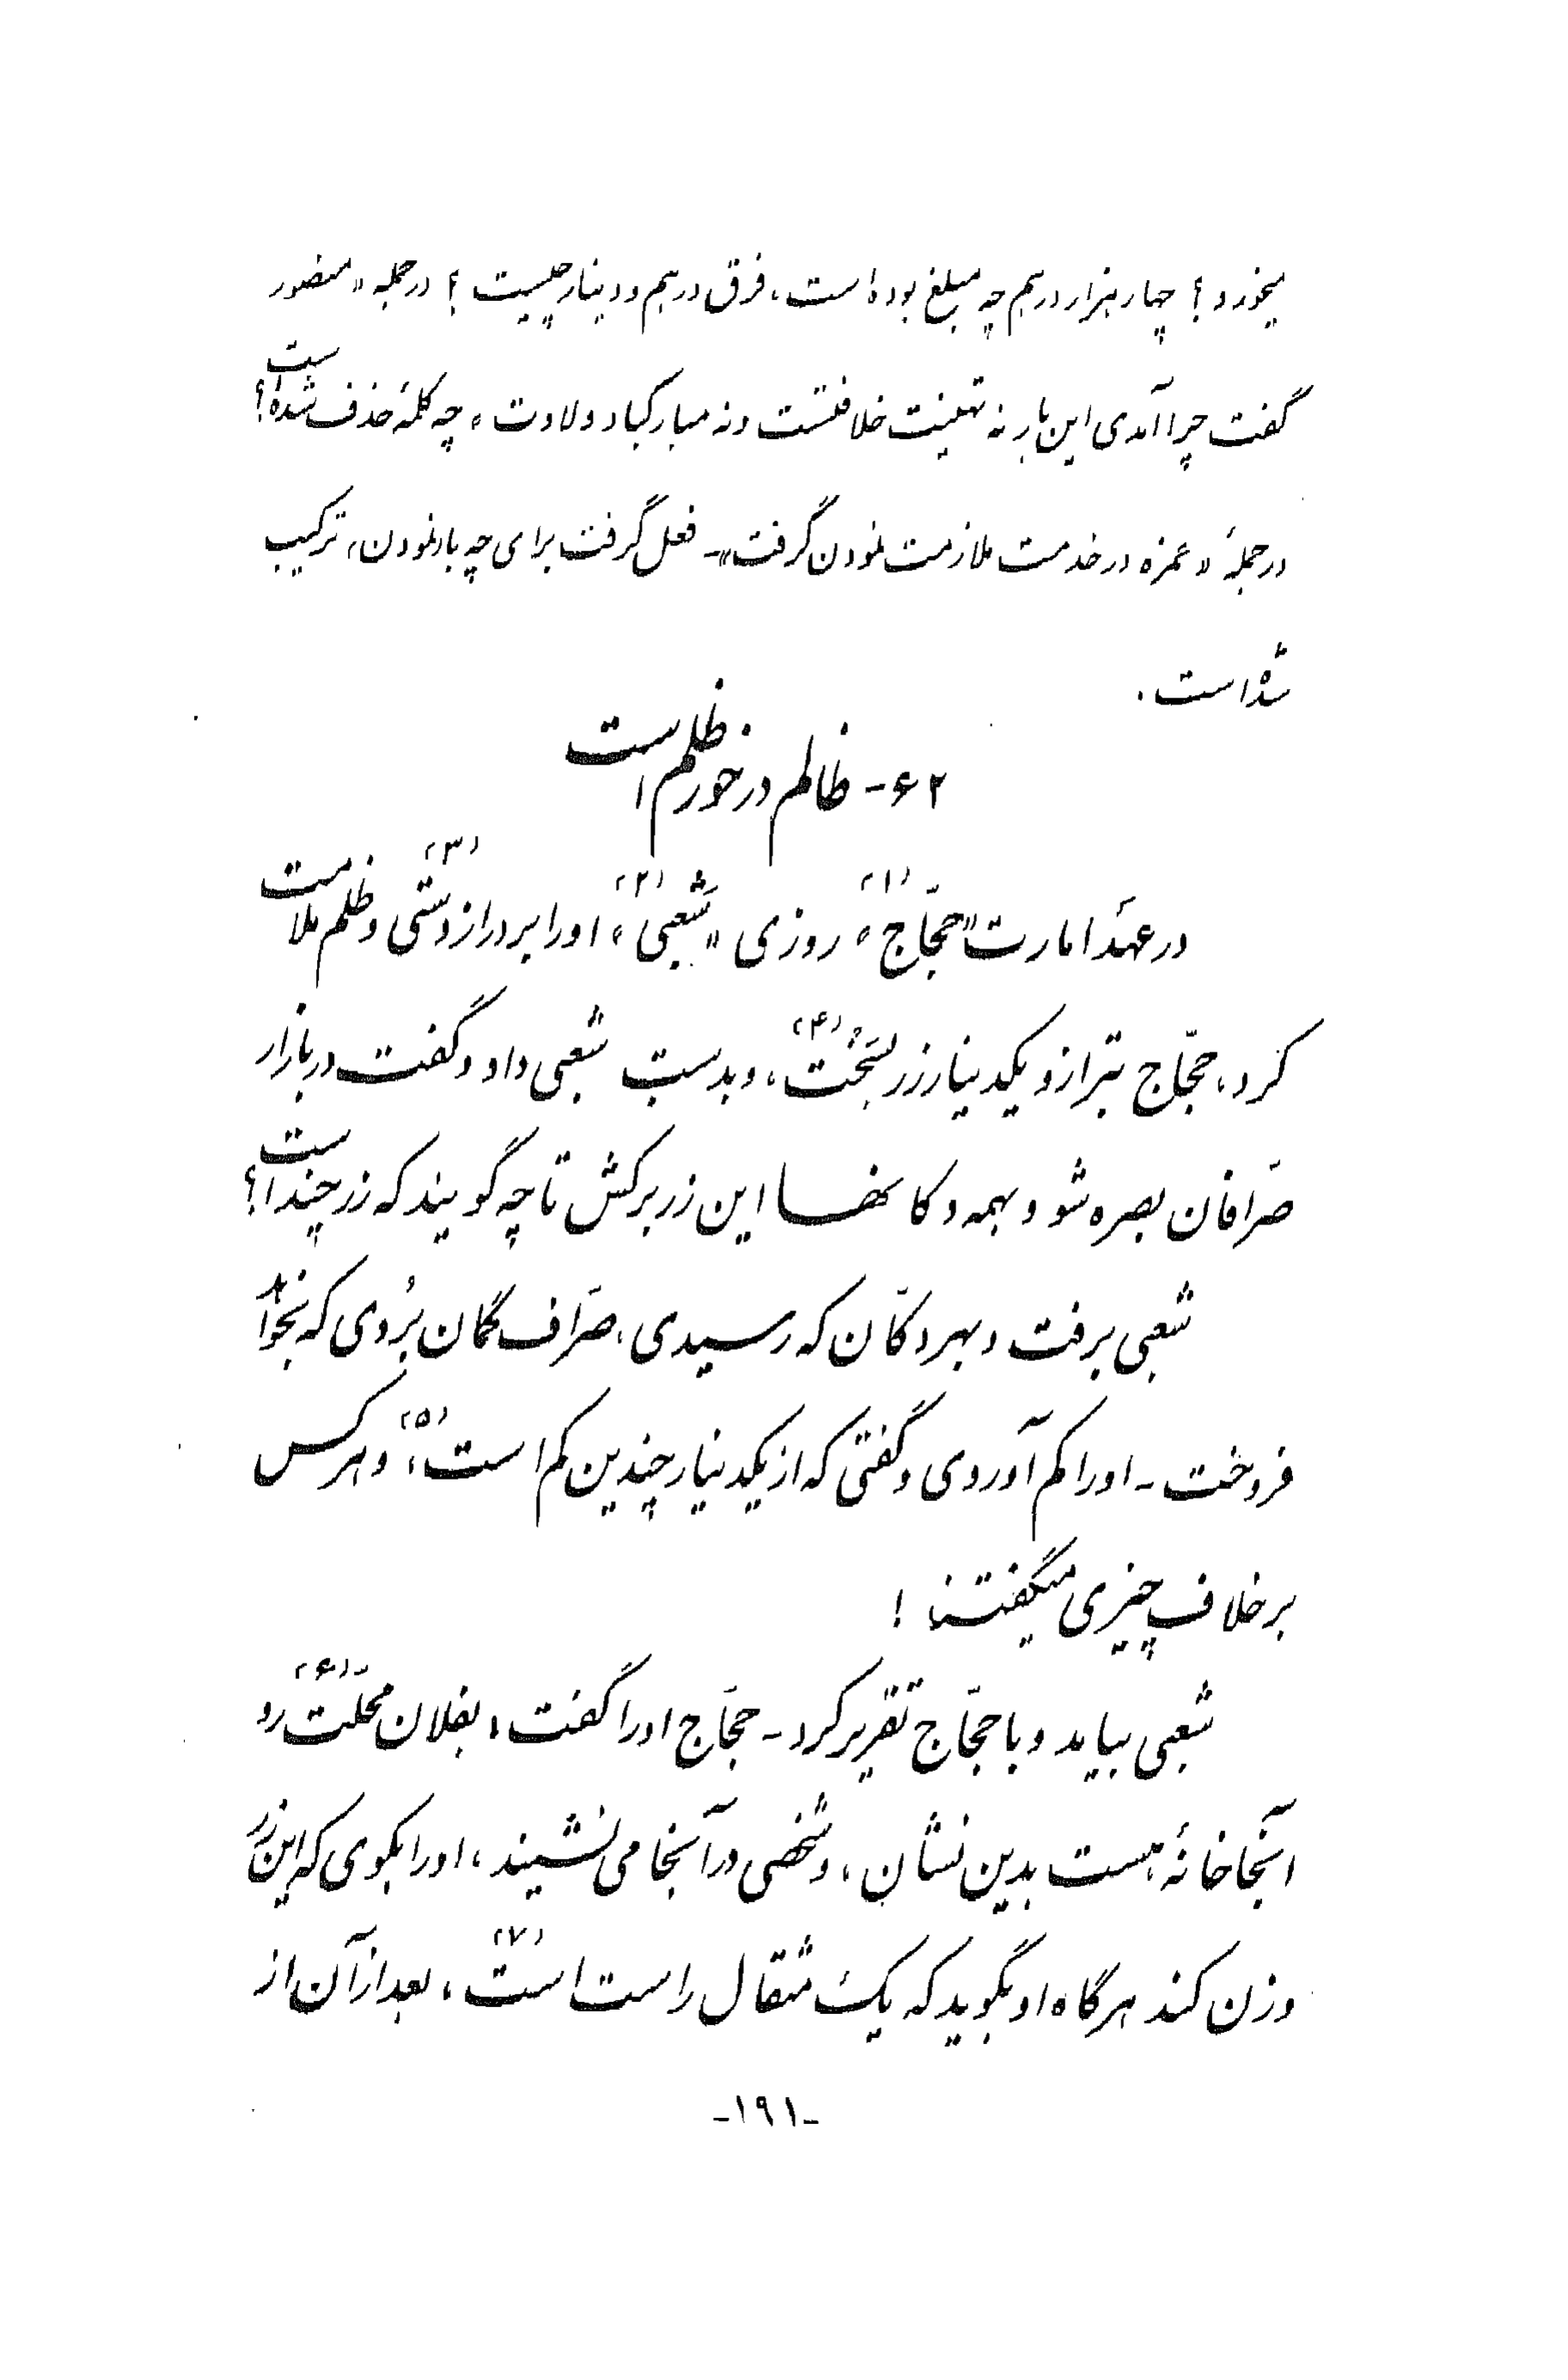 میخورد؟ چهار هزار درهم چه مبلغ بوده است، فرق درهم و دینار چیست؟ در جمله «منصور
گفت چرا آمدی این بار نه تهنیت خلافتست و نه مبارکباد ولادت» چه کلمهٔ حذف شده است؟
در جملهٔ «عمزه در خدمت ملازمت نمودن گرفت» - فعل گرفت برای چه با، نمودن، ترکیب
شده است.
۶۲- ظالم در خور ظلم است
در عهد امارت «حجّاج»(۱) روزی «شَعبی»(۲) او را بر دراز دستی(۳) و ظلم ملامت
کرد، حجّاج بترازو یکدینار زر بسَخْت(۴)، و بدست شعبی داد و گفت در بازار
صرّافان بصره شو و بهمه دکانها این زر برکش تا چه گویند که زر چند است؟
شعبی برفت و بهر دکّان که رسیدی، صرّاف گمان بُردی که بخواهد
فروخت - او را کم آوردی و گفتی که از یکدینار چندین کم است(۵)، و هر کس
بر خلاف چیزی میگفتند!
شعبی بیامد و با حجّاج تقریر کرد - حجّاج او را گفت، بفلان محلّت(۶) رو
آنجا خانهٔ هست بدین نشان، و شخصی در آنجا می نشیند، او را بگوی که این زر
وزن کند هرگاه او بگوید که یک مثقال راست است(۷)، بعد از آن از
-۱۹۱-